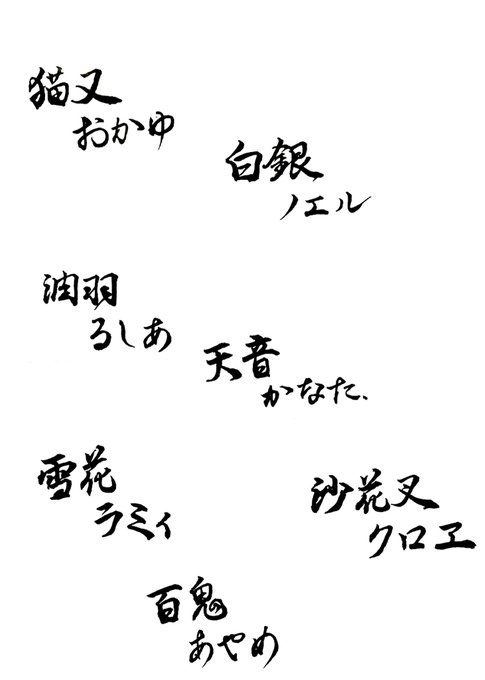 猫又
おかゆ
白銀
ノエル
潤羽
るしあ
天音
かなた、
雪花
ラミィ
沙花叉
クロヱ
百鬼
あやめ